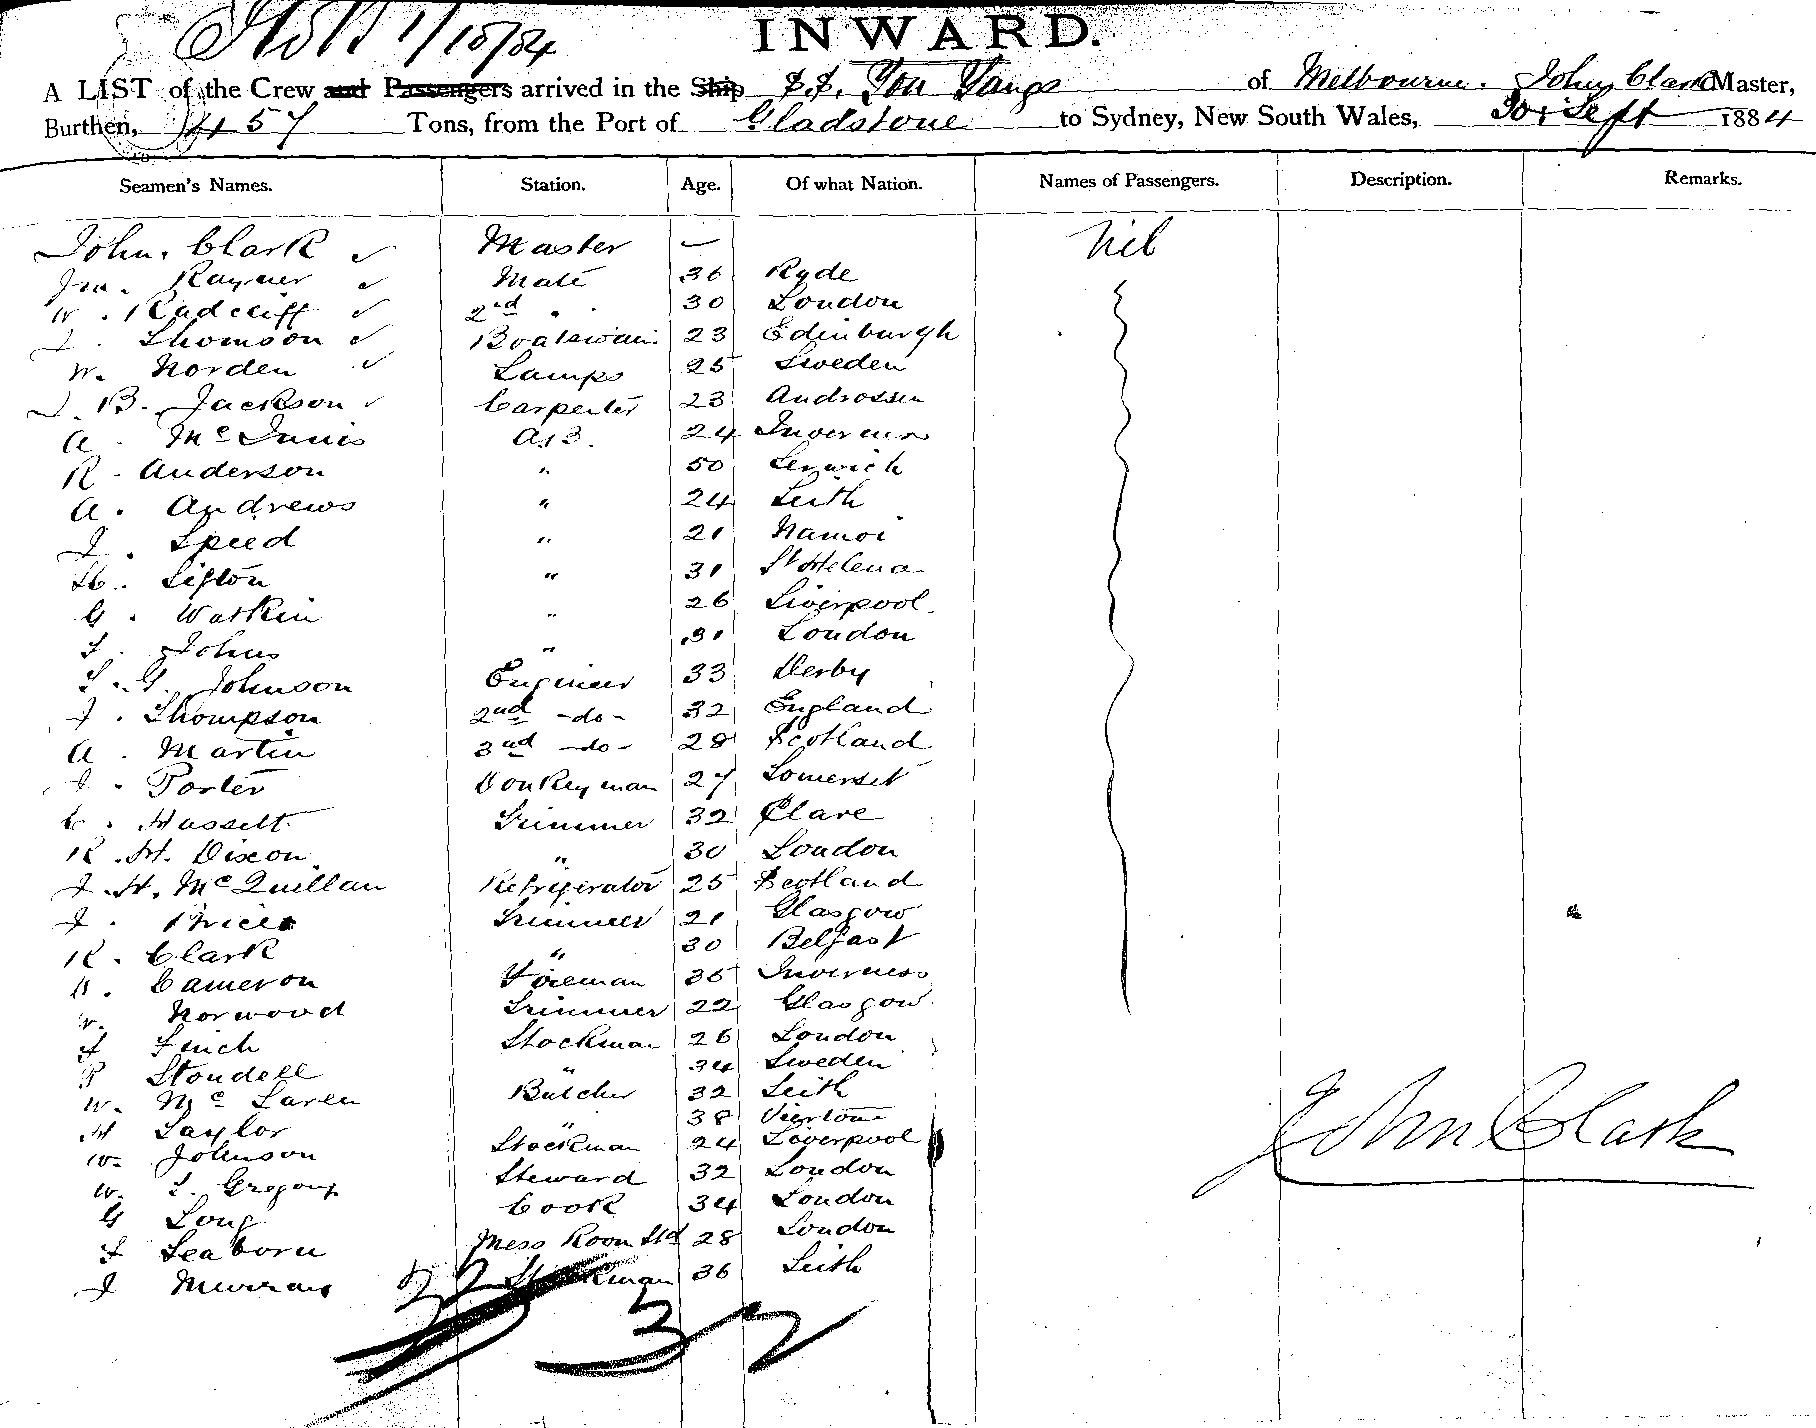 1/10/84
INWARD.
A LIST of the Crew and Passengers arrived in the Ship S.S. You Yangs of Melbourne. John Clark Master,
Burthen, 457 Tons, from the Port of Gladstone to Sydney, New South Wales, 30, Sept 1884
Seamen's Names. Station. Age. Of what Nation. Names of Passengers. Description. Remarks.
John. Clark ✓ Master — Nil
Jno. Rayner ✓ Mate 36 Ryde
W. Radcliff ✓ 2nd " 30 London
J. Thomson ✓ Boatswain 23 Edinburgh
W. Norden ✓ Lamps 25 Sweden
J. B. Jackson ✓ Carpenter 23 Androssen
A. Mc Innis A.B. 24 Inverness
R. Anderson " 50 Lerwick
A. Andrews " 24 Leith
J. Speed " 21 Namoi
H. Sifton " 31 St Helena
G. Watkin " 26 Liverpool
J. Johns " 31 London
T. G. Johnson Engineer 33 Derby
J. Thompson 2nd -do- 32 England
A. Martin 3rd -do- 28 Scotland
J. Porter Donkeyman 27 Somerset
C. Hassett Trimmer 32 Clare
R. H. Dixon " 30 London
J. H. McQuillan Refrigerator 25 Scotland
J. Price Trimmer 21 Glasgow
R. Clark " 30 Belfast
D. Cameron Fireman 35 Inverness
W. Norwood Trimmer 22 Glasgow
J Finch Stockman 26 London
Stondell " 34 Sweden
W. Mc Laren Butcher 32 Leith
H Taylor " 38
W. Johnson Stockman 24 Liverpool
W. T. Gregory Steward 32 London
G Long Cook 34 London
J Seaborn Mess Room Std 28 London
J Murray Stockman 36 Leith
32
John Clark